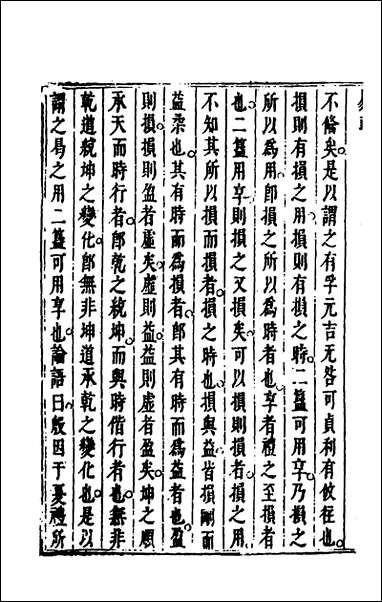 不脩矣是以謂之有孚元吉无咎可貞利有攸往也
損則有損之用損則有損之時二簋可用享乃損之
所以爲用卽損之所以爲時者也享者禮之至損者
也二簋用享則損之又損矣可以損則損者損之用
不知其所以損而損者損之時也損與益皆損剛而
益柔也其有時而爲損者卽其有時而爲益者也盈
則損損則盈者虛矣虛則益益則虛者盈矣坤之順
承天而時行者卽乾之統坤而與時偕行者也無非
乾道統坤之變化卽無非坤道承乾之變化也是以
謂之曷之用二簋可用享也論語曰殷因于夏禮所